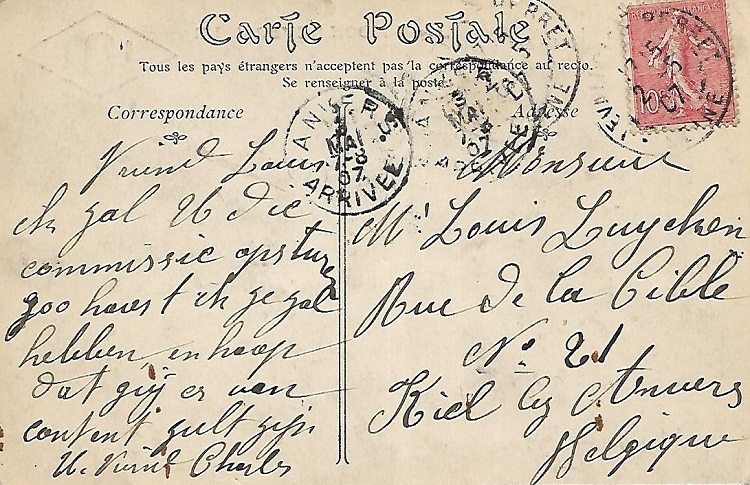 Carte Postale
Tous les pays étrangers n'acceptent pas la correspondance au recto.
Se renseigner à la poste.
Correspondance
Adresse
REPUBLIQUE FRANÇAISE
10
LEVALLOIS-PERRET
SEINE
5
07
ANVERS
MAI
7-8
07
ARRIVÉE
ANVERS
MAI
07
ARRIVÉE
Vriend Louis
ik zal U die
commissie opsture
zoo haast ik ze zal
hebben, en hoop
dat gij er van
content zult zijn
U. Vriend Charles
Monsieur
Mr Louis Luycken
Rue de la Cible
No 21
Kiel lez Anvers
Belgique